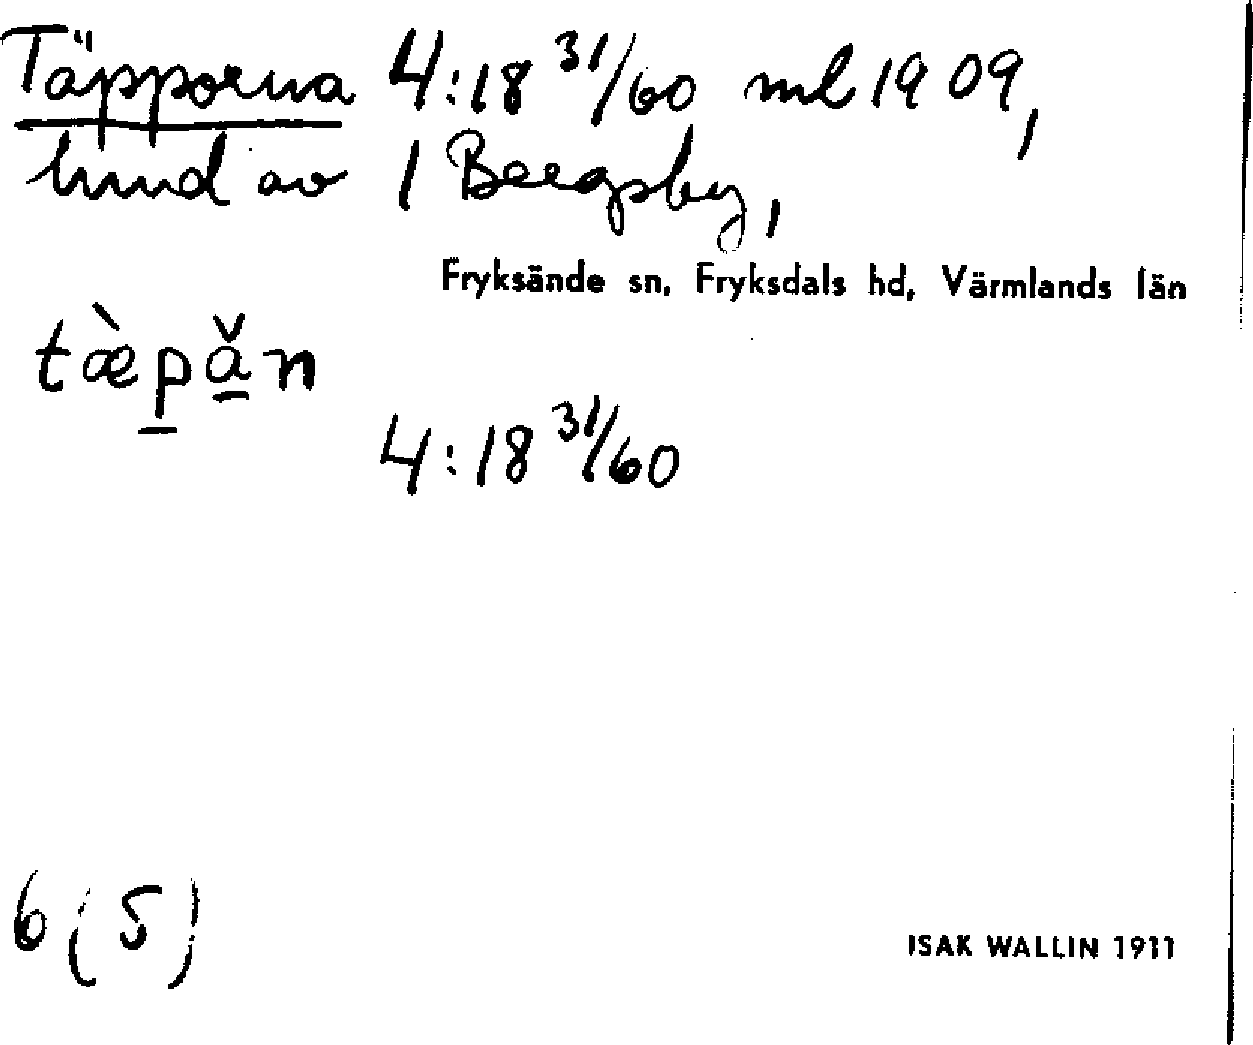 Täpporna 4:18 31/60 ml 1909,
hmd av 1 Bergsby,
Fryksände sn, Fryksdals hd, Värmlands län
tæ̀pǎ̠n
4:18 31/60
6(5)
ISAK WALLIN 1911